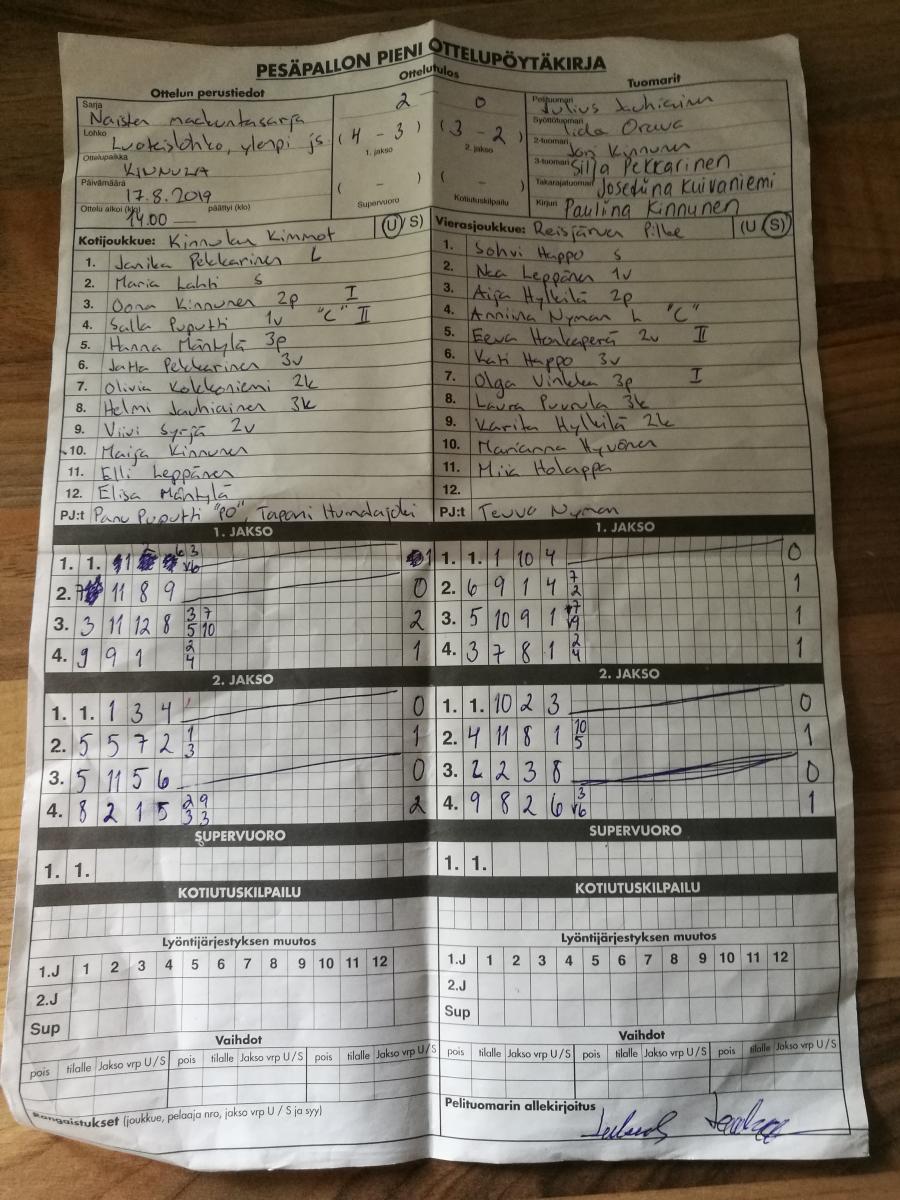 PESÄPALLON PIENI OTTELUPÖYTÄKIRJA
Ottelun perustiedot
Ottelutulos
Tuomarit
Sarja Naisten maakuntasarja
Lohko Luoteislohko, ylempi js
Ottelupaikka KINNULA
Päivämäärä 17.8.2019
Ottelu alkoi (klo) 14.00 päättyi (klo)
2 0
(4 - 3) (3 - 2)
1. jakso 2. jakso
( - ) ( - )
Supervuoro Kotiutuskilpailu
Pelituomari Julius Jauhiainen
Syöttötuomari Iida Orava
2-tuomari Jori Kinnunen
3-tuomari Silja Pekkarinen
Takarajatuomari Josefiina Kuivaniemi
Kirjuri Pauliina Kinnunen
Kotijoukkue: Kinnulan Kimmot (U/S)
1. Janika Pekkarinen L
2. Maria Lahti S
3. Oona Kinnunen 2p I
4. Salla Puputti 1v "C" II
5. Hanna Mäntylä 3p
6. Jatta Pekkarinen 3v
7. Olivia Kokkoniemi 2k
8. Helmi Jauhiainen 3k
9. Viivi Syrjä 2v
10. Maija Kinnunen
11. Elli Leppänen
12. Elisa Mäntylä
PJ:t Panu Puputti "PO", Tapani Humalajoki
Vierasjoukkue: Reisjärven Pilke (U/S)
1. Sohvi Happo S
2. Nea Leppänen 1v
3. Aija Hylkilä 2p
4. Anniina Nyman L "C"
5. Eeva Honkaperä 2v II
6. Kati Happo 3v
7. Olga Vinkka 3p I
8. Laura Puurula 3k
9. Karita Hylkilä 2k
10. Marianna Hyvönen
11. Miia Holappa
12.
PJ:t Teuvo Nyman
1. JAKSO
1. 1. 11 3 6 1
2. 7 11 8 9 0
3. 3 11 12 8 3 5 7 10 2
4. 9 9 1 2 4 1
2. JAKSO
1. 1. 1 3 4 0
2. 5 5 7 2 1 3 1
3. 5 11 5 6 0
4. 8 2 1 5 2 3 9 3 2
SUPERVUORO
1. 1.
KOTIUTUSKILPAILU
Lyöntijärjestyksen muutos
1.J 1 2 3 4 5 6 7 8 9 10 11 12
2.J
Sup
Vaihdot
pois tilalle Jakso vrp U/S pois tilalle Jakso vrp U/S pois tilalle Jakso vrp U/S
Rangaistukset (joukkue, pelaaja nro, jakso vrp U / S ja syy)
1. JAKSO
1. 1. 1 10 4 0
2. 6 9 1 4 7 2 1
3. 5 10 9 1 7 9 1
4. 3 7 8 1 2 4 1
2. JAKSO
1. 1. 10 2 3 0
2. 4 11 8 1 10 5 1
3. 2 2 3 8 0
4. 9 8 2 6 3 6 1
SUPERVUORO
1. 1.
KOTIUTUSKILPAILU
Lyöntijärjestyksen muutos
1.J 1 2 3 4 5 6 7 8 9 10 11 12
2.J
Sup
Vaihdot
pois tilalle Jakso vrp U/S pois tilalle Jakso vrp U/S pois tilalle Jakso vrp U/S
Pelituomarin allekirjoitus